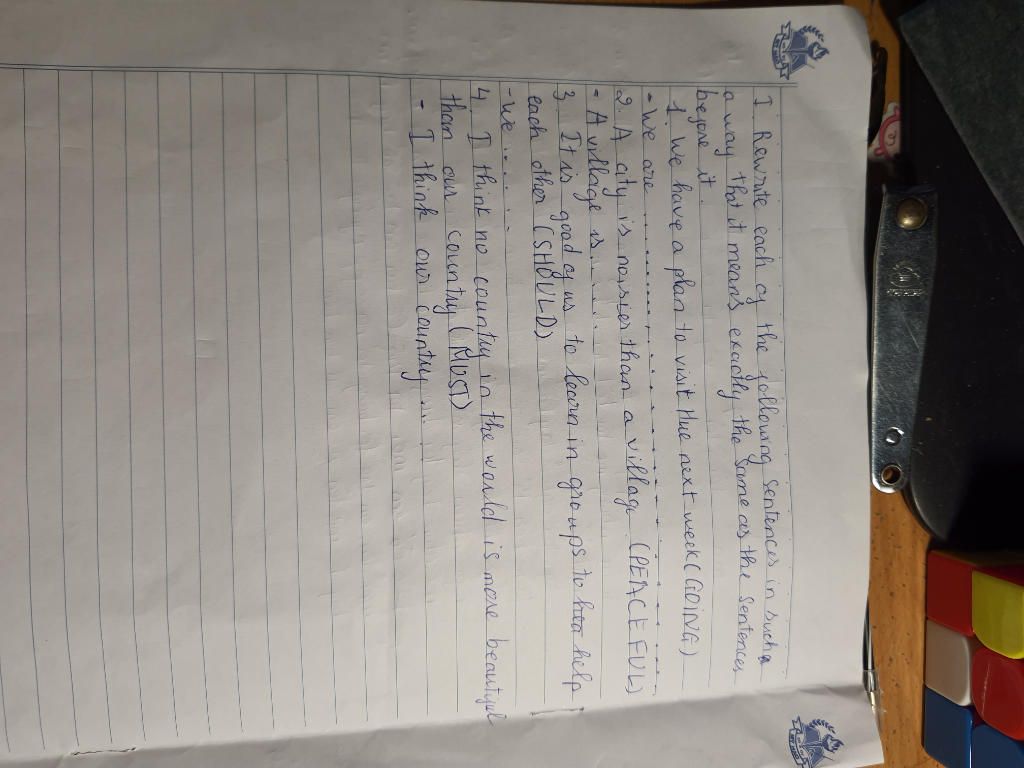 I. Rewrite each of the following sentences in such a
a way that it means exactly the same as the sentences
before it.
1. We have a plan to visit Hue next week (GOING)
- We are ..............................
2. A city is noisier than a village (PEACEFUL)
- A village is ......
3. It is good of us to learn in groups to help
each other (SHOULD)
- We ......
4. I think no country in the would is more beautiful
than our country (MOST)
- I think our country....